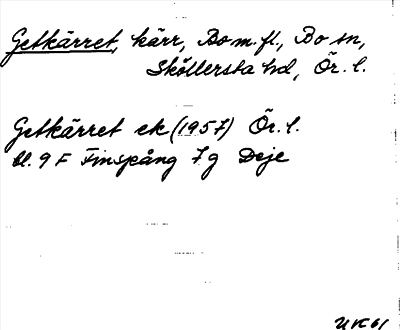 Getkärret, kärr, Bo m.fl., Bo sn,
Sköllersta hd, Ör. l.
Getkärret ek (1957) Ör. l.
bl. 9 F Finspång 7 g Deje
UK 61